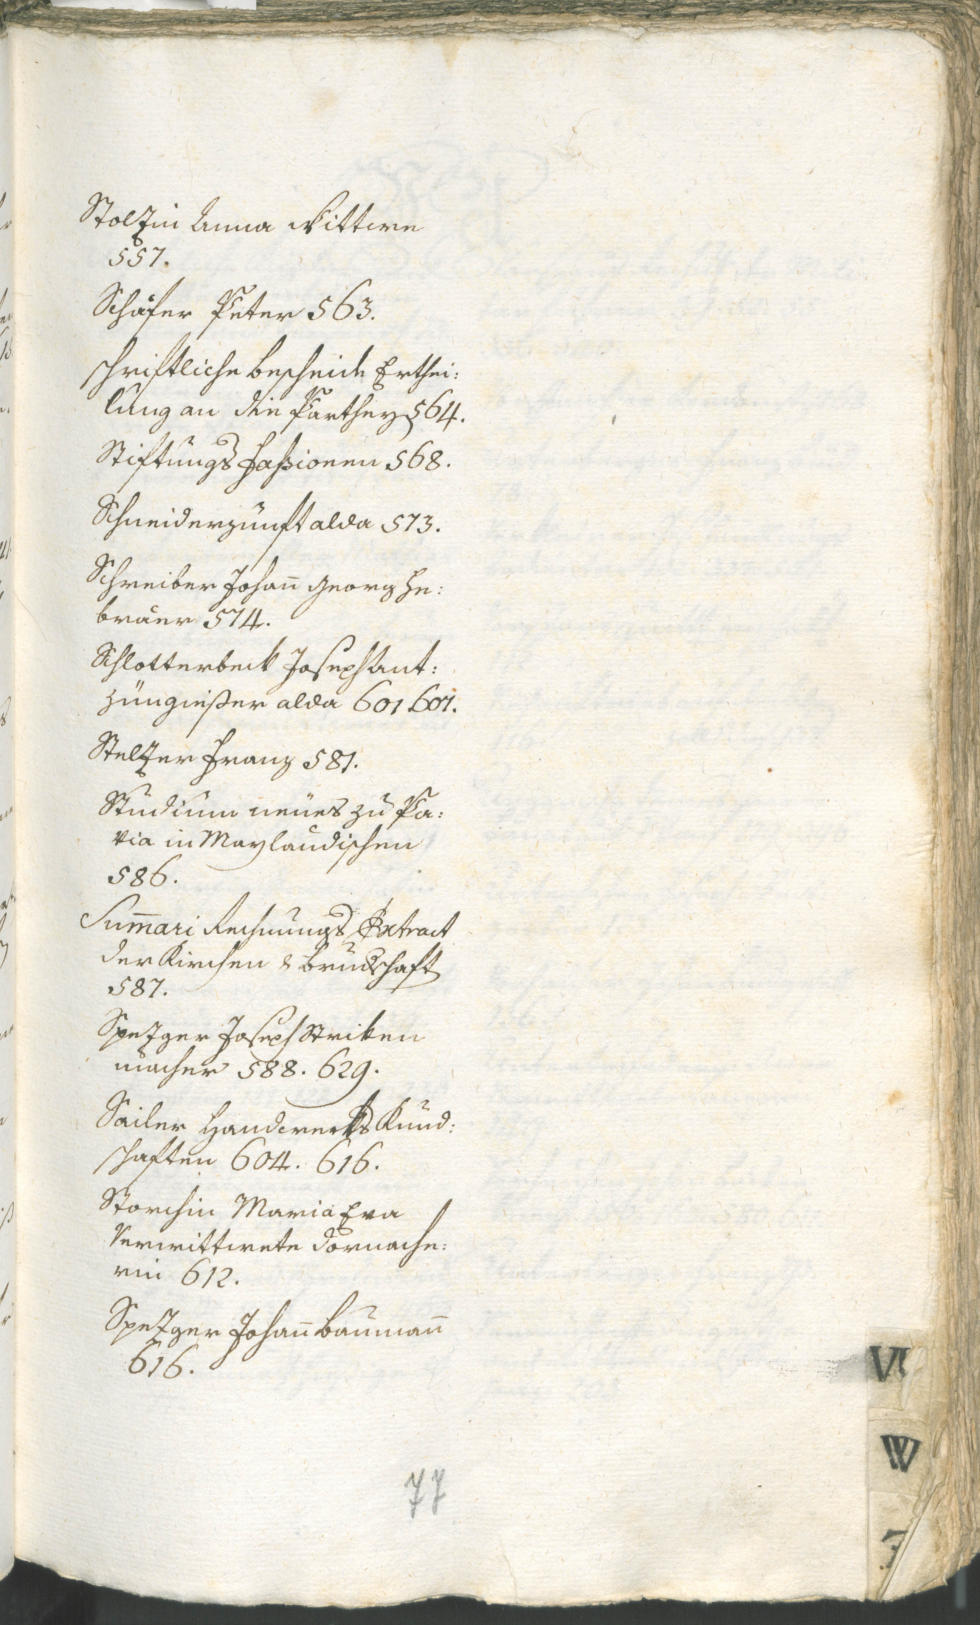 Stolzin Anna Wittwe
557.
Schäfer Peter 563.
schriftliche bescheide Erthei:
lung an die Parthey 564.
Stiftungs Faßionen 568.
Schneiderzunft alda 573.
Schreiber Johann Georg He:
bräer 574.
Schlotterbeck Joseph Ant:
Züngießer alda 601 607.
Stelzer Franz 581.
Studium neües zu Pa:
via in Maylandischen
586.
Summari Rechnungs Extract
der Kirchen & bruderschaft
587.
Spezger Joseph Striken
macher 588. 629.
Sailer Handwerks Kund:
schaften 604. 616.
Storchin Maria Eva
Verwittwete Dornache:
rin 612.
Spezger Johann baumann
616.
77
V
W
Z